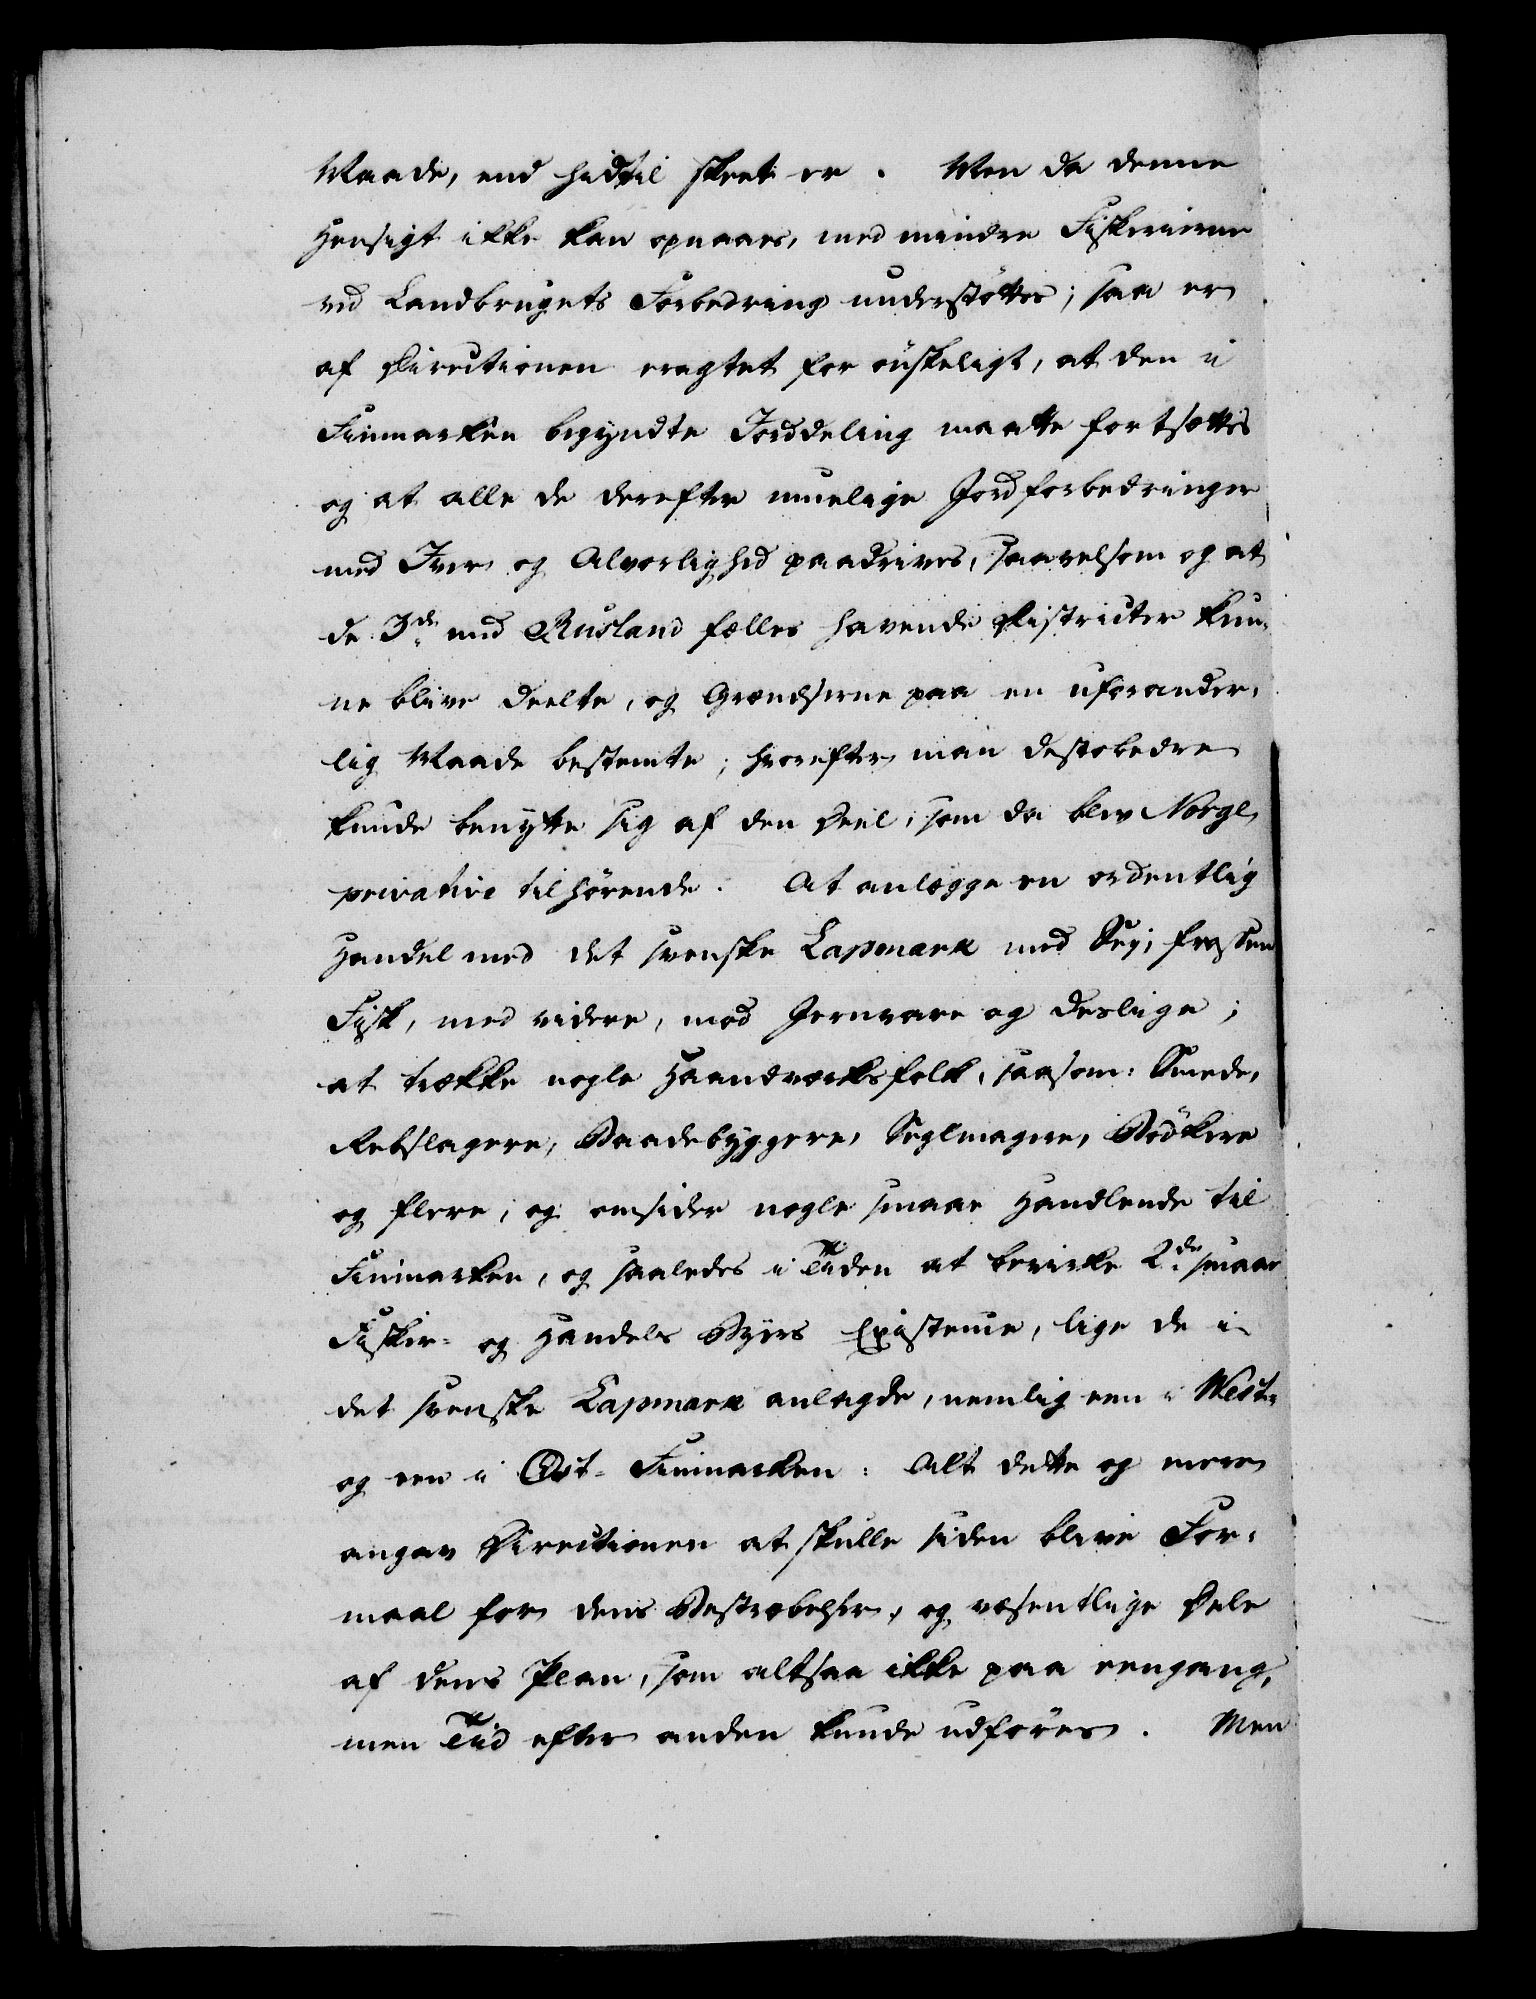 Maade, end hidtil skeet er. Men da denne
Hensigt ikke kan opnaaes, med mindre Fiskerierne
ved Landbrugets Forbedring understøttes; saa er
af Directionen eragtet for ønskeligt, at den i
Finmarken begyndte Jorddeling maatte fortsættes
og at alle de derefter muelige Jordforbedringer
med Iver og Alvorlighed paadrives, saavelsom og at
de 3de med Rusland fælles havende Districter kun¬
ne blive deelte, og Grændserne paa en uforander¬
lig Maade bestemte; hvorefter man destobedre
kunde benytte sig af den Deel, som da blev Norge
privative tilhørende. At anlægge en ordentlig
Handel med det svenske Lapmark med Sey, frossen
Fisk, med videre, mod Jernvare og deslige;
at trække nogle Haandværksfolk, saasom: Smede,
Rebslagere, Baadebyggere, Seglmagere, Bødkere
og flere, og omsider nogle smaae Handlende til
Finmarken, og saaledes i Tiden at bevirke 2de smaae
Fisker- og Handels Byers Existence, lige de i
det svenske Lapmark anlagde, nemlig een i West-
og een i Øst-Finmarken: Alt dette og mere
angav Directionen at skulle siden blive For¬
maal for dens Bestræbelser, og væsentlige Dele
af dens Plan, som altsaa ikke paa eengang,
men Tiid efter anden kunde udføres. Men